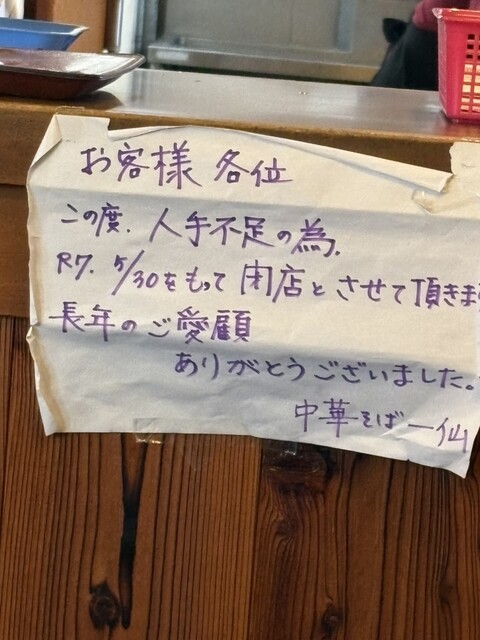 お客様 各位
この度、人手不足の為、
R7. 5/30をもって閉店とさせて頂きます
長年のご愛顧
ありがとうございました。
中華そば一仙